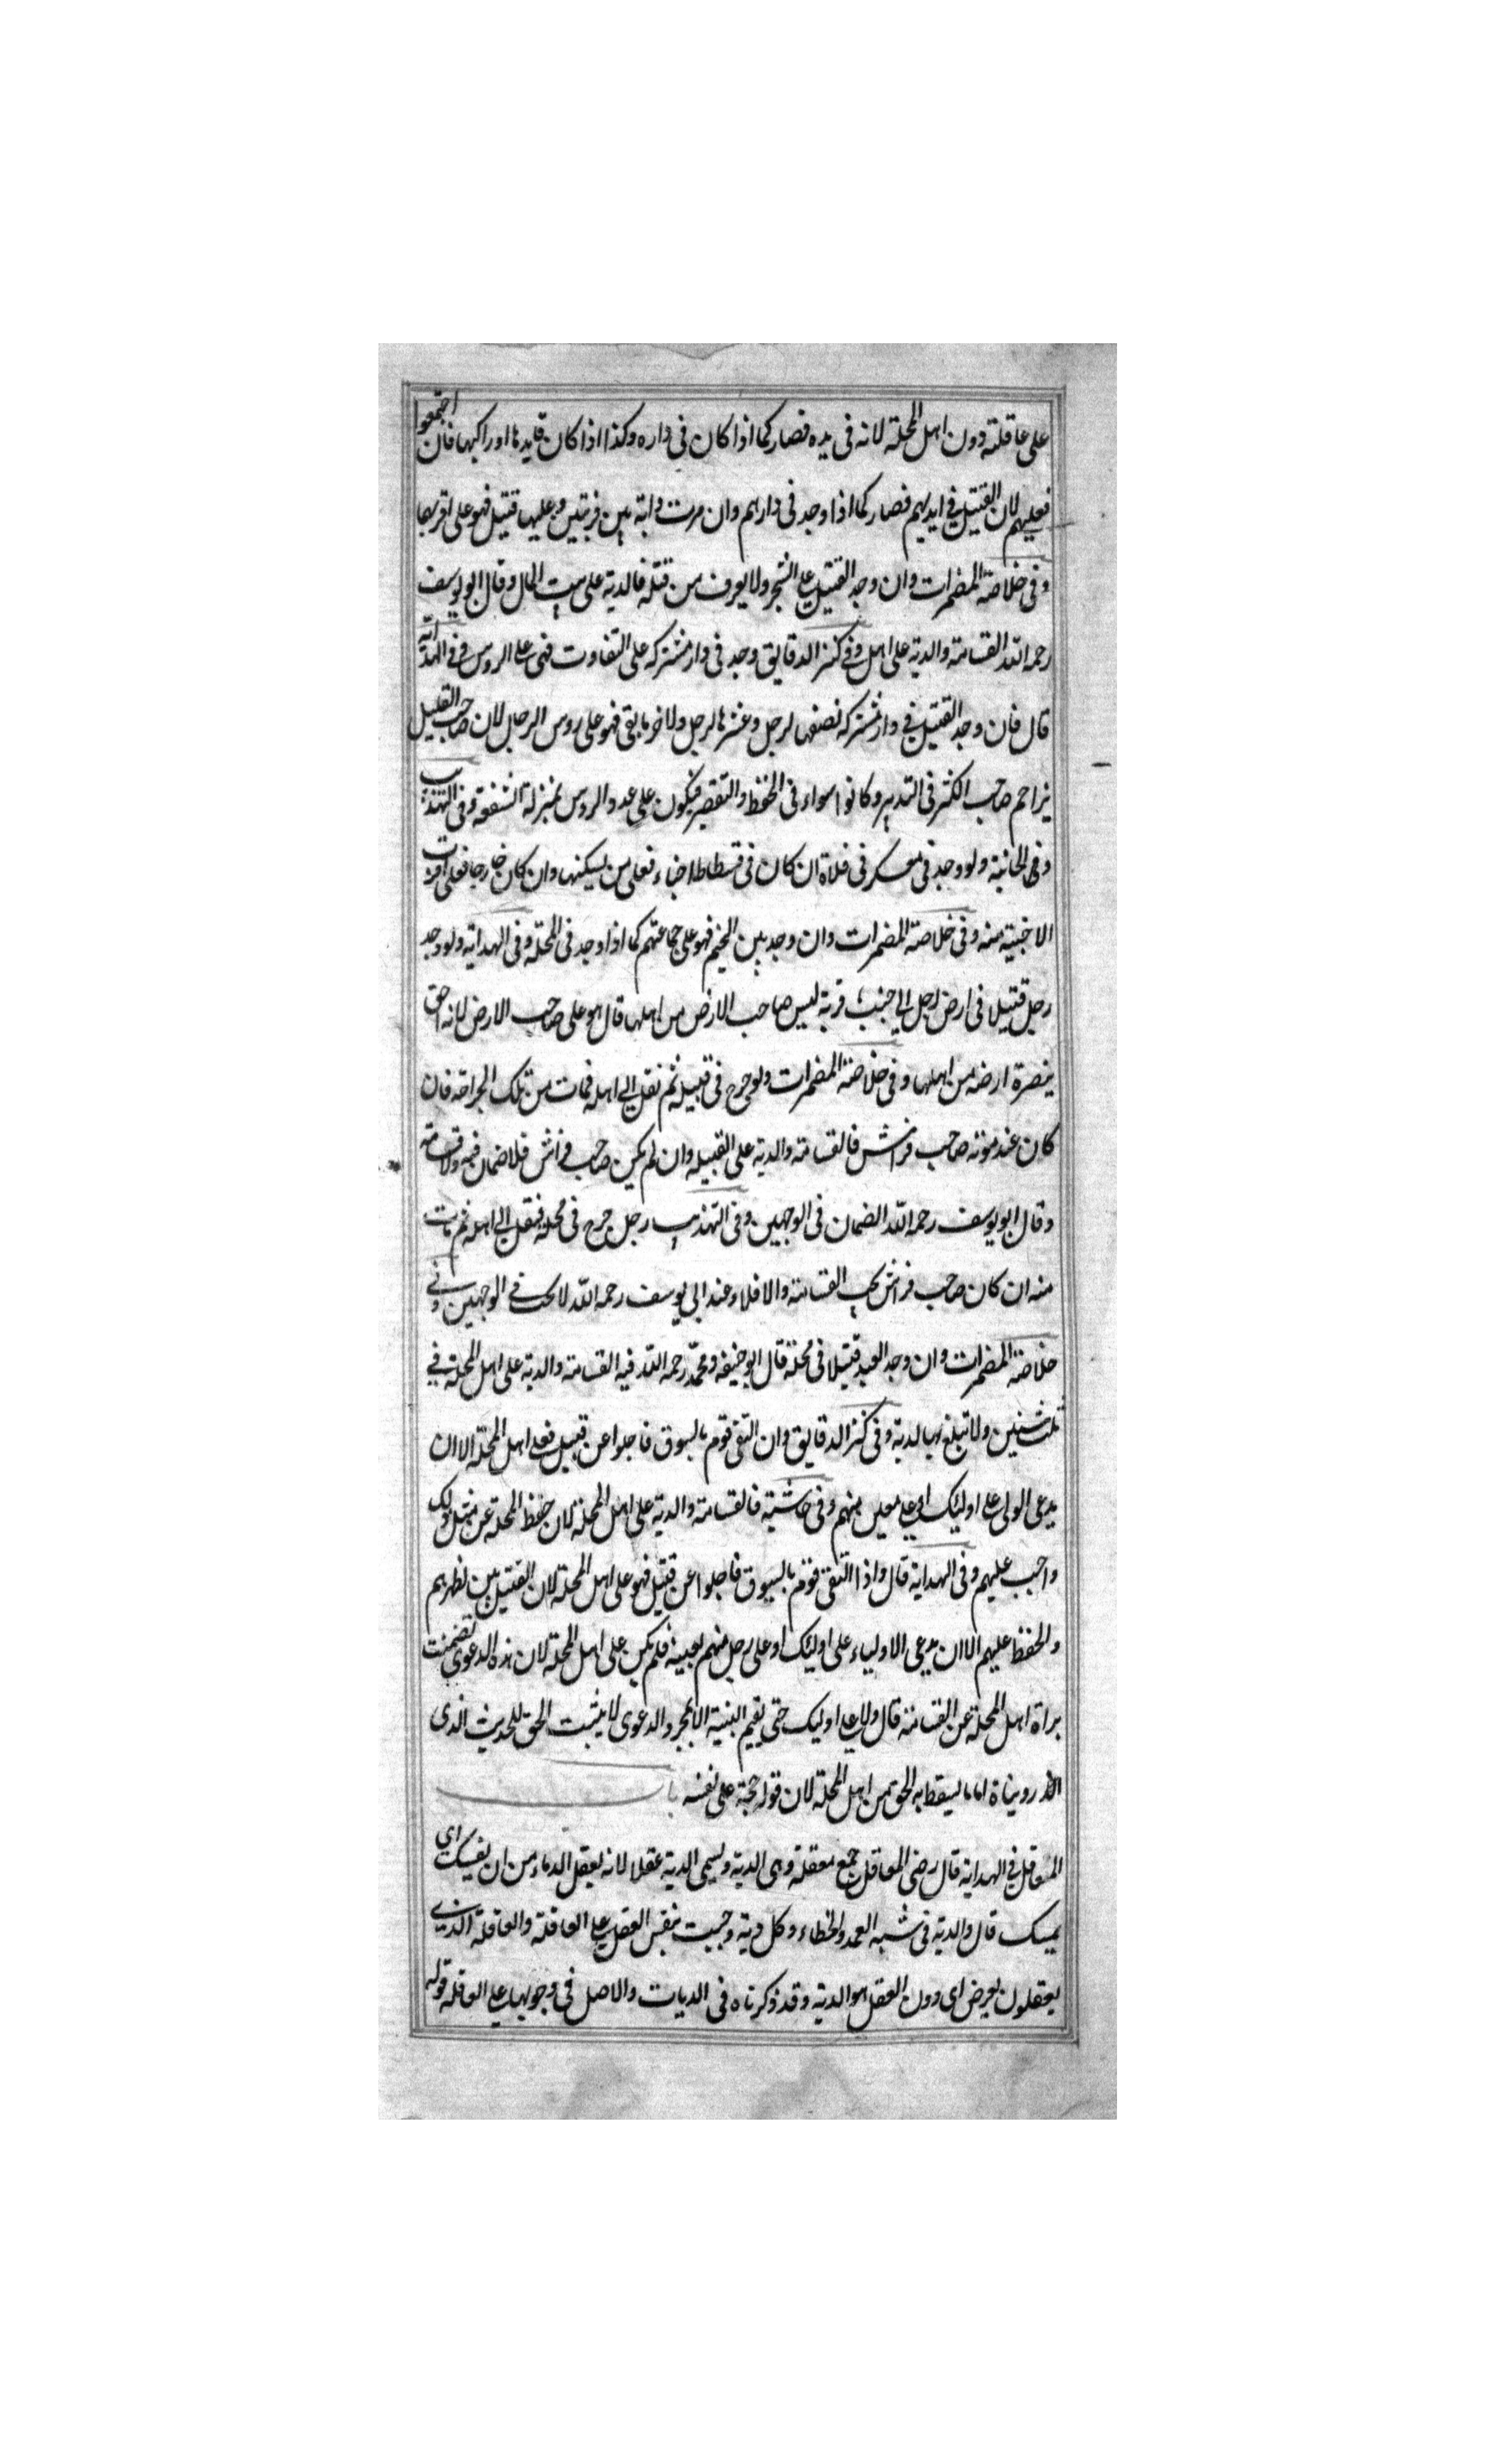 على عاقلته دون اهل المحلة لانه فى يده فصار كما اذا كان فى داره وكذا اذا كان قايدها او راكبها فان اجتمعوا
فعليهم لان القتيل فى ايديهم فصار كما اذا وجد فى دارهم وان مرت دابة بين قريتين وعليها قتيل فهو على اقربها
وفى خلاصة المضمرات وان وجد القتيل على الشجر ولا يعرف من قتله فالدية على بيت المال وقال ابو يوسف
رحمه الله القسامة والدية على اهل وفى كنز الدقايق وجد فى دار مشتركه على التفاوت فهى على الروس وفى الهداية
قال فان وجد القتيل فى دار مشتركه نصفها لرجل وعشرها لرجل ولاخر ما بقى فهو على روس الرجال لان صاحب القليل
يزاحم صاحب الكثير فى التدبير وكانوا سواء فى الحفظ والتقصير فيكون على عدد الروس بمنزلة الشفعة وفى التهذيب
وفى الخانية ولو وجد فى معسكر فى فلاة ان كان فى فسطاط او خباء فعلى من يسكنها وان كان خارجا فعلى اقرب
الاخبية منه وفى خلاصة المضمرات وان وجد بين الخيم فهو على جماعتهم كما اذا وجد فى المحلة وفى الهداية ولو وجد
رجل قتيلا فى ارض رجل الى جنب قرية ليس صاحب الارض من اهلها قال هو على صاحب الارض لانه احق
بنصرة ارضه من اهلها وفى خلاصة المضمرات ولو جرح فى قبيلة ثم نقل الى اهله فمات من تلك الجراحة فان
كان عند موته صاحب فراش فالقسامة والدية على القبيله وان لم يكن صاحب فراش فلا ضمان فيه ولا قسامة
وقال ابو يوسف رحمه الله الضمان فى الوجهين وفى التهذيب رجل جرح فى محلة فنقل الى اهله ثم مات
منه ان كان صاحب فراش يجب القسامة والا فلا وعند ابى يوسف رحمه الله لا يجب فى الوجهين وفى
خلاصة المضمرات وان وجد العبد قتيلا فى محلة قال ابو حنيفه ومحمد رحمه الله فيه القسامة والدية على اهل المحلة فى
ثلث سنين ولا تبلغ بها لدية وفى كنز الدقايق وان التقى قوم بالسيوف فاجلوا عن قتيل فعلى اهل المحلة الا ان
يدعى الولى على اوليك او على معين منهم وفى حاشية فالقسامة والدية على اهل المحلة لان حفظ المحلة عن مثل ذلك
واجب عليهم وفى الهداية قال واذا التقى قوم بالسيوف فاجلوا عن قتيل فهو على اهل المحلة لان القتيل بين اظهرهم
والحفظ عليهم الا ان يدعى الاولياء على اوليك او على رجل منهم بعينه فلم يكن على اهل المحلة لان هذه الدعوى تضمنت
براة اهل المحلة عن القسامة قال ولا على اوليك حتى يقيم البينة الا بمجرد الدعوى لا يثبت الحق للحديث الذى
رويناه اما ما يسقط به الحق من اهل المحلة لان قوله حجة على نفسه با
المعاقل فى الهداية قال رضى المعاقل جمع معقلة وهى الدية ويسمى الدية عقلا لانه يعقل الدماء من ان يسفك اى
يمسك قال والدية فى شبه العمد والخطاء وكل دية وجبت بنفس العقل على العاقلة والعاقلة الذين
يعقلون بعرض اى دون العقل هو الدية وقد ذكرناه فى الديات والاصل فى وجوبها على العاقلة قوله